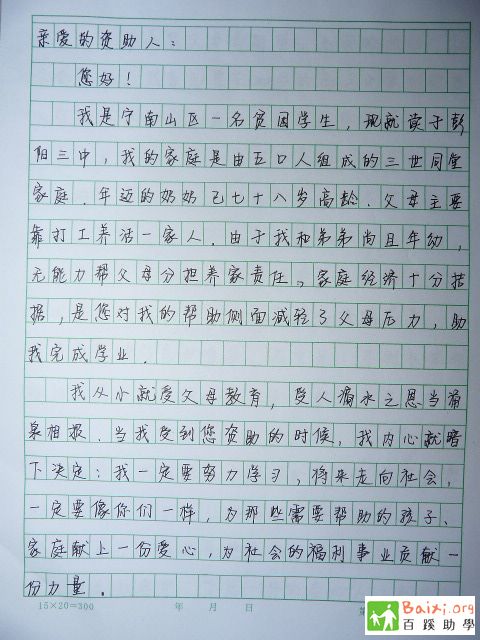 亲爱的资助人：
您好！
我是宁南山区一名贫困学生，现就读于彭
阳三中，我的家庭是由五口人组成的三世同堂
家庭．年迈的奶奶已七十八岁高龄．父母主要
靠打工养活一家人．由于我和弟弟尚且年幼，
无能力帮父母分担养家责任。家庭经济十分拮
据，是您对我的帮助侧面减轻了父母压力，助
我完成学业．
我从小就受父母教育，受人滴水之恩当涌
泉相报．当我受到您资助的时候，我内心就暗
下决定：我一定要努力学习，将来走向社会，
一定要像你们一样，为那些需要帮助的孩子、
家庭献上一份爱心，为社会的福利事业贡献一
份力量．
15×20=300 年 月 日 第
Baixi.org
百蹊助學